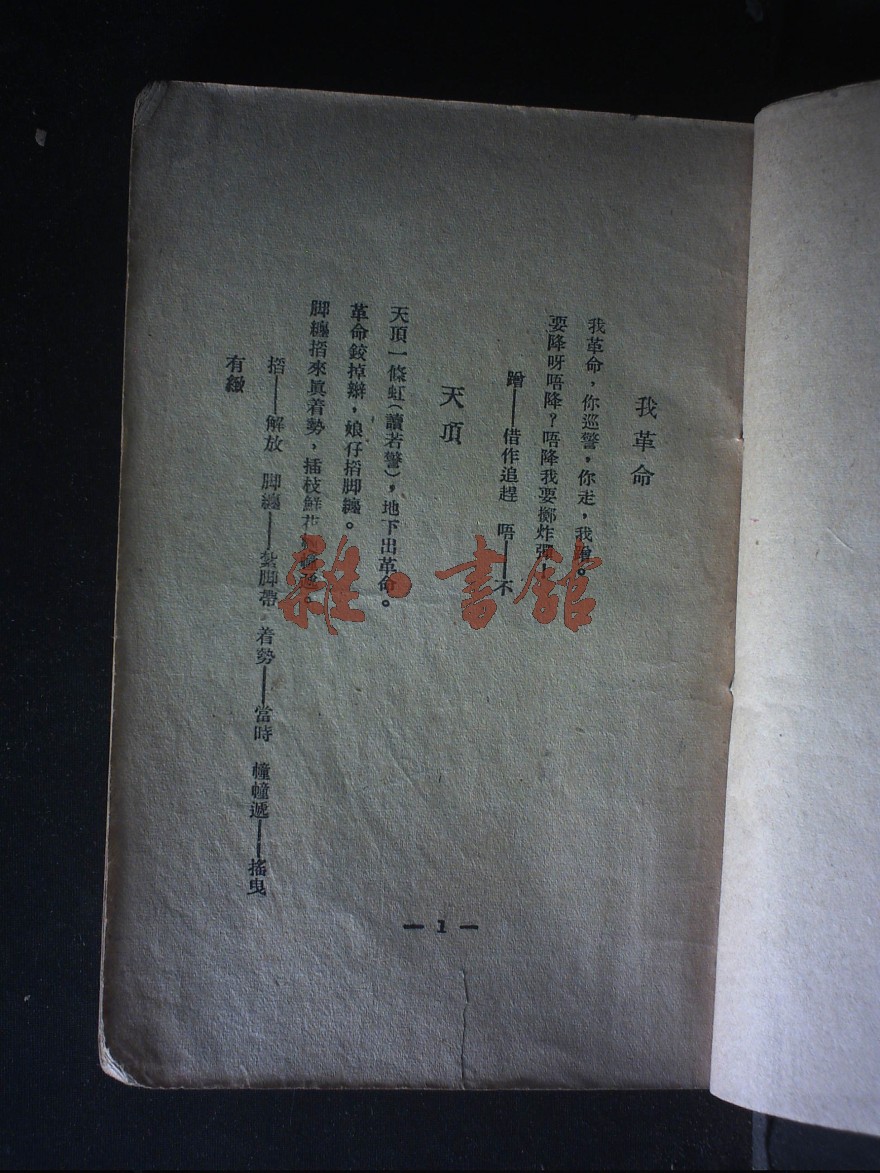 我革命
我革命，你巡警，你走，我蹭。
要降呀唔降？唔降我要擲炸彈！
蹭——借作追趕　唔——不
天頂
天頂一條虹（讀若警），地下出革命。
革命鉸掉辮，娘仔摺脚纏。
脚纏摺來眞着勢，插枝鮮花
摺——解放　脚纏——紮脚帶　着勢——當時　幢幢遞——搖曳
有緻
— 1 —
雜·書館